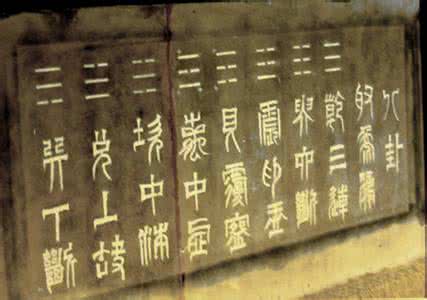 八卦
取象歌
乾三連
坤中斷
震仰盂
艮覆盌
離中虛
坎中滿
兌上缺
巽下斷